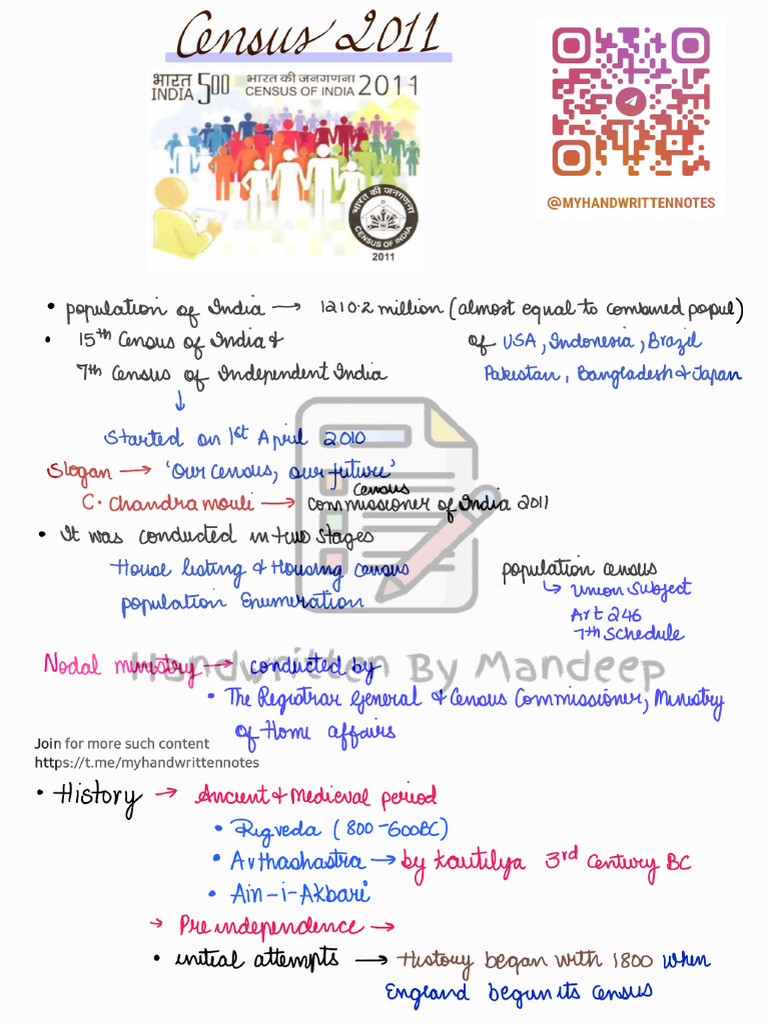 Census 2011
भारत INDIA 500 भारत की जनगणना CENSUS OF INDIA 2011
भारत की जनगणना
CENSUS OF INDIA
2011
@MYHANDWRITTENNOTES
• population of India → 1210.2 million (almost equal to combined popul)
• 15th Census of India & of USA, Indonesia, Brazil
7th Census of Independent India Pakistan, Bangladesh & Japan
↓
Started on 1st April 2010
Slogan → 'Our census, our future'
Census
C. Chandramouli → Commissioner of India 2011
• It was conducted in two stages
House listing & Housing census population census
↳ Union Subject
population Enumeration Art 246
7th Schedule
Handwritten By Mandeep
Nodal ministry → conducted by
• The Registrar General & Census Commissioner, Ministry
of Home affairs
Join for more such content
https://t.me/myhandwrittennotes
• History → Ancient & Medieval period
• Rigveda (800-600BC)
• Arthashastra → by Kautilya 3rd Century BC
• Ain-i-Akbari
→ Pre independence →
• initial attempts → History began with 1800 when
England begun its Census